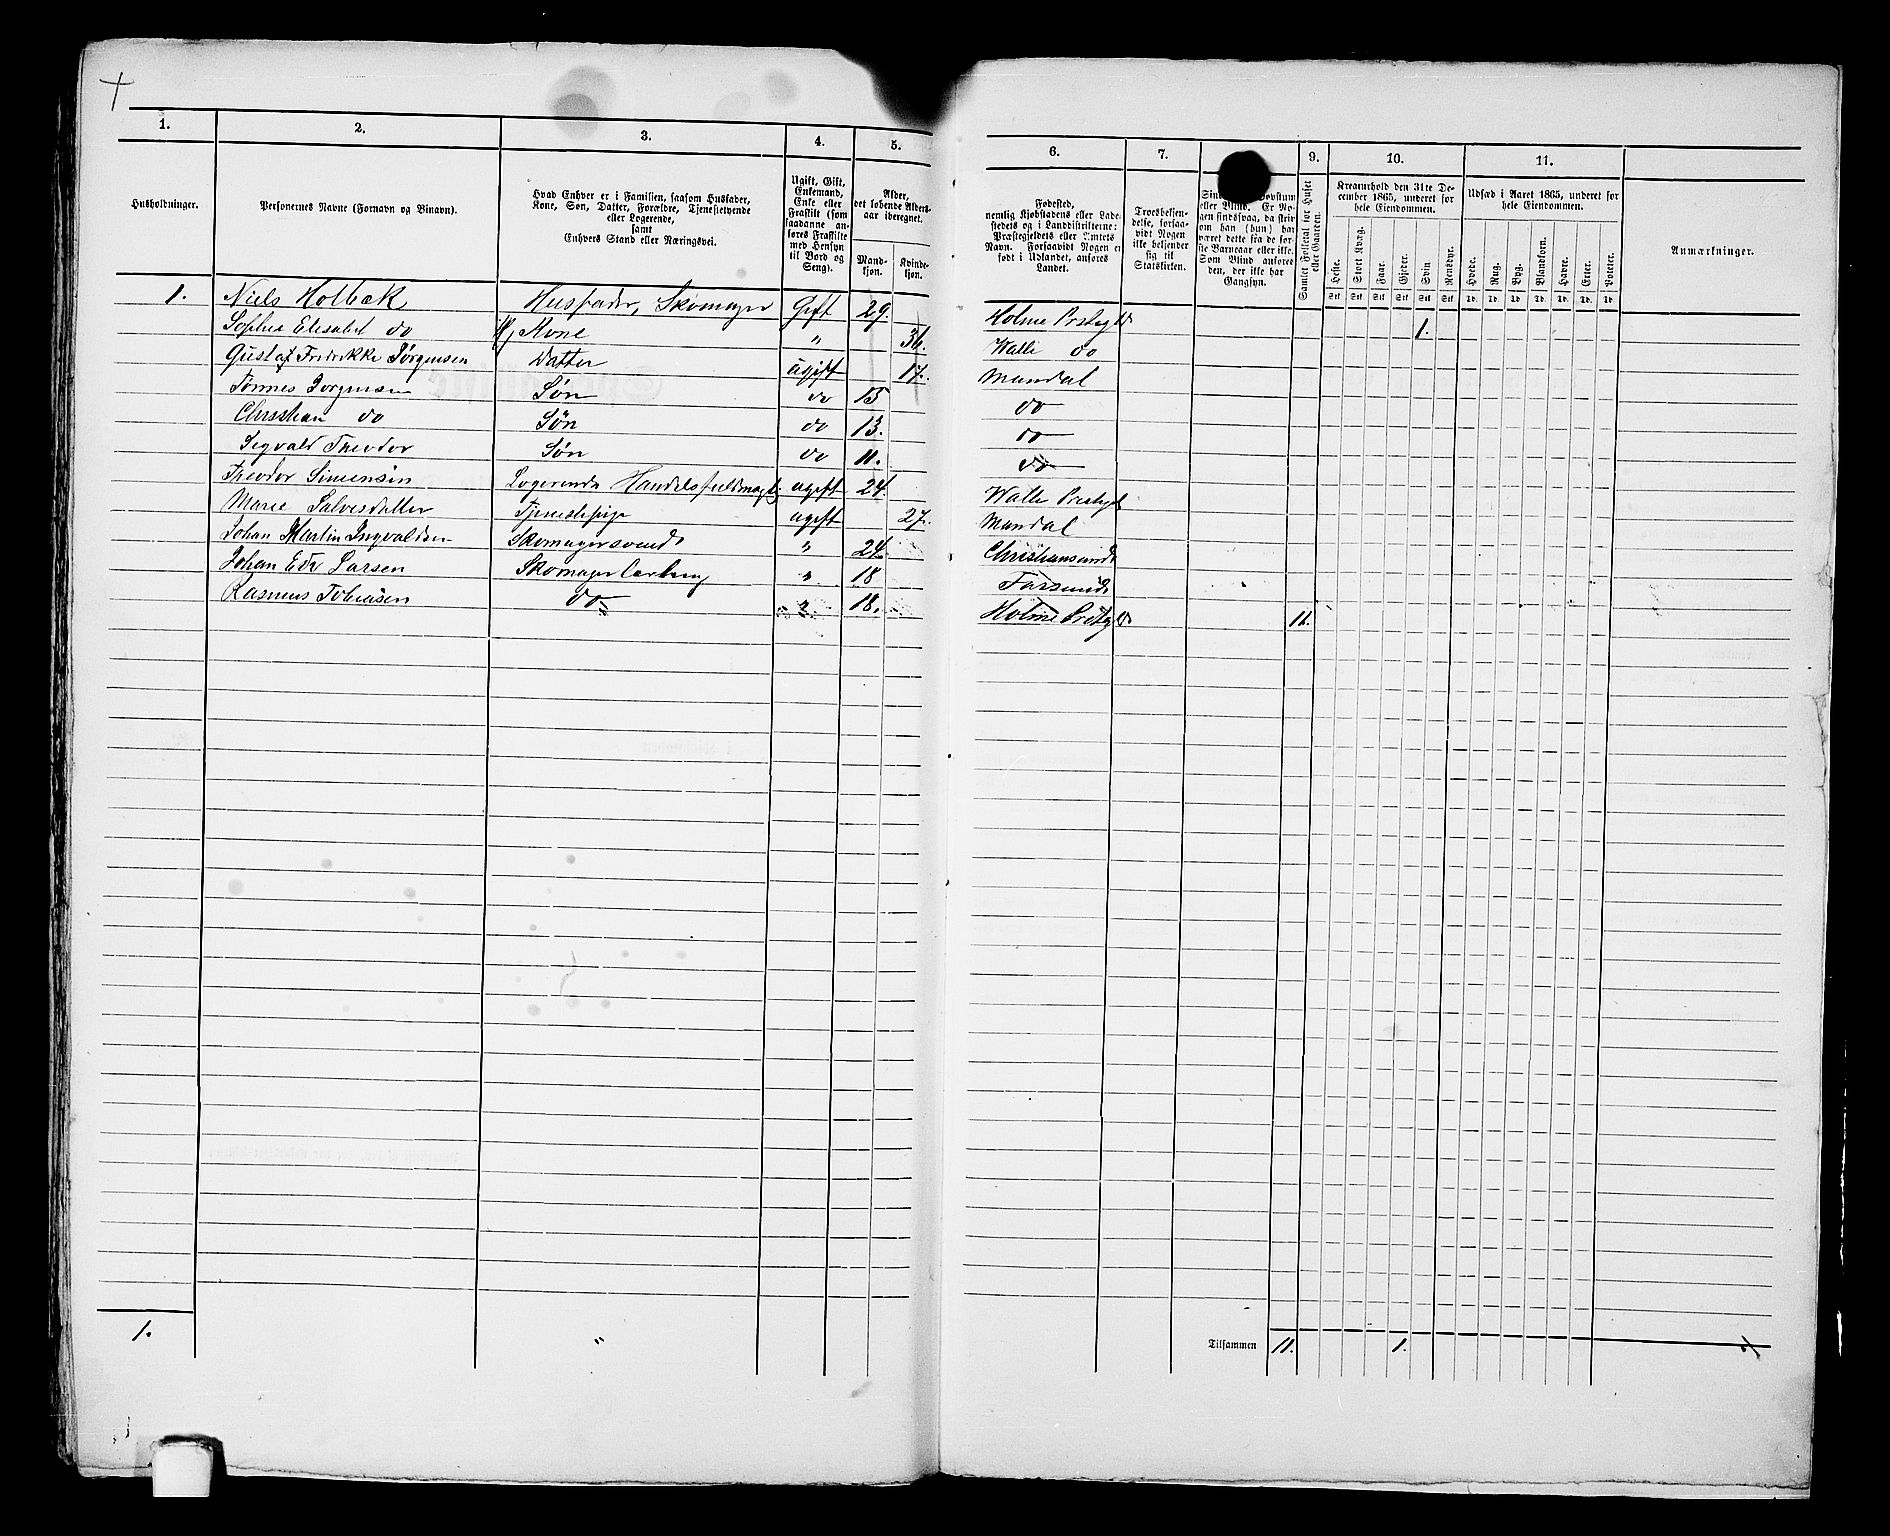 1. 2. 3. 4. 5. 6. 7. 9. 10. 11.
Husholdninger.
Personernes Navne (Fornavn og Binavn).
Hvad Enhver er i Familien, saasom Husfader, Kone, Søn, Datter, Forældre, Tjenestetyende eller Logerende, samt Enhvers Stand eller Næringsvei.
Ugift, Gift, Enkemand, Enke eller Fraskilt (som saadanne anføres Fraskilte med Hensyn til Bord og Seng).
Alder, det løbende Alders-aar iberegnet.
Mandkjøn. Kvindekjøn.
Fødested, nemlig Kjøbstadens eller Ladestedets og i Landdistrikterne: Præstegjeldets eller Amtets Navn. Forsaavidt Nogen er født i Udlandet, anføres Landet.
Troesbekjendelse, forsaavidt Nogen ikke bekjender sig til Statskirken.
eller Blind. Er Nogen sindssvag, da skrives om han (hun) har været dette fra de første Barneaar eller ikke. Som Blind anføres den, der ikke har Gangsyn.
Samlet Folketal for Huset eller Gaarden.
Kreaturhold den 31te December 1865, underet for hele Eiendommen.
Heste. Stort Kvæg. Faar. Gjeder. Svin Rensdyr.
Udsæd i Aaret 1865, underet for hele Eiendommen.
Hvede. Rug. Byg. Blandkorn. Havre. Erter. Poteter.
Anmærkninger.
1. Niels Holbæk Husfader, Skomager Gift 29. Holme Prstgld
Sophie Elisabet do Hj Kone " 36. Walle do 1.
Gustaf Fredrikke Jørgensen Datter ugift 17. Mandal
Tønnes Jorgensen Søn do 15 do
Christian do Søn do 13. do
Sigvald Theodor Søn do 11. do
Theodor Simensen Logerende Handelsfuldmægtig ugift 24. Walle Prestgld
Marie Salvesdatter Tjenestepige ugift 27. Mandal
Johan Martin Ingvaldsen Skomagersvend " 24. Christiansund
Johan Edv Larsen Skomagerlærling " 18 Farsund
Rasmus Tobiasen do " 18. Holme Prstgld 11.
1. " Tilsammen 11. 1.